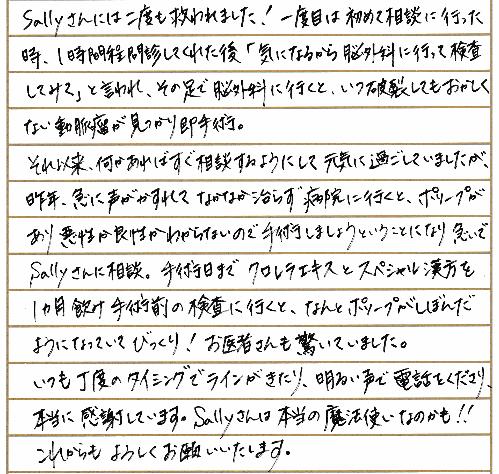 Sallyさんには二度も救われました！一度目は初めて相談に行った
時、1時間程問診してくれた後「気になるから脳外科に行って検査
してみて」と言われ、その足で脳外科に行くと、いつ破裂してもおかしく
ない動脈瘤が見つかり即手術。
それ以来、何かあればすぐ相談するようにして元気に過ごしていましたが、
昨年、急に声がかすれてなかなか治らず病院に行くと、ポリープが
あり悪性か良性かわからないので手術しましょうということになり急いで
Sallyさんに相談。手術日までクロレラエキスとスペシャル漢方を
1カ月飲け手術前の検査に行くと、なんとポリープがしぼんだ
ようになっていてびっくり！お医者さんも驚いていました。
いつも丁度のタイミングでラインがきたり、明るい声で電話をくださり、
本当に感謝しています。Sallyさんは本当の魔法使いなのかも!!
これからもよろしくお願いいたします。